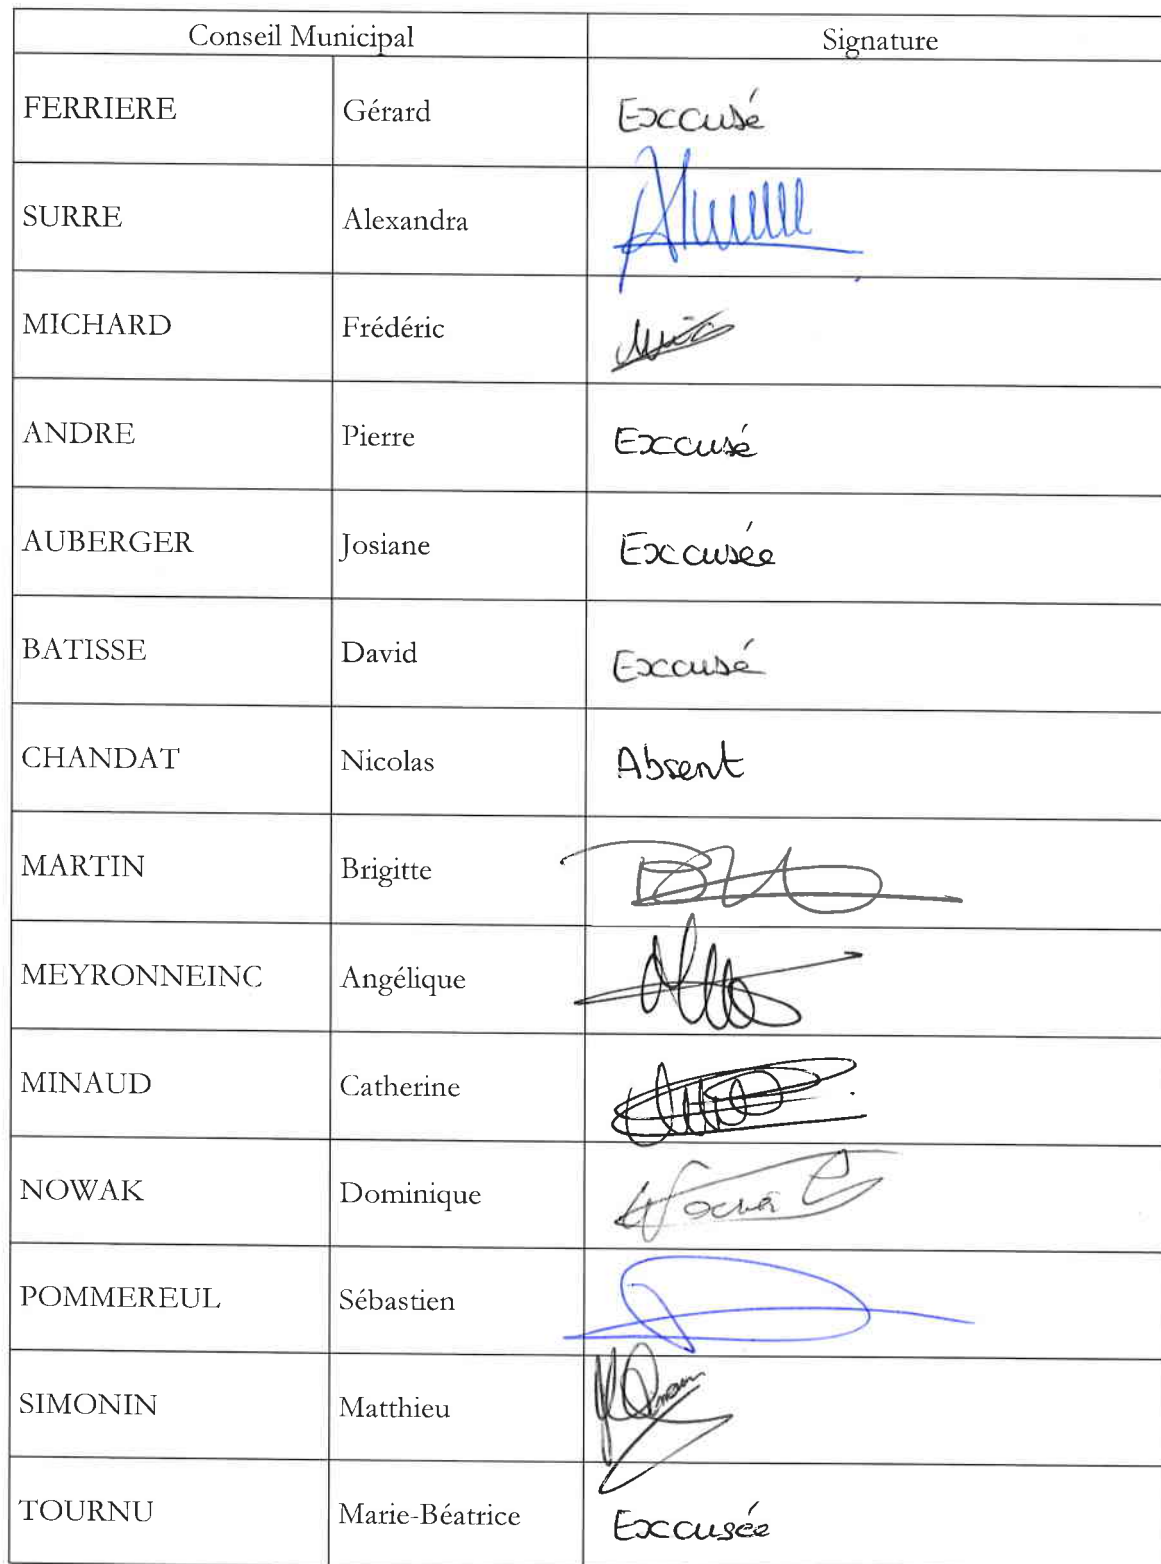 Conseil Municipal Signature
FERRIERE Gérard Excusé
SURRE Alexandra
MICHARD Frédéric
ANDRE Pierre Excusé
AUBERGER Josiane Excusée
BATISSE David Excusé
CHANDAT Nicolas Absent
MARTIN Brigitte
MEYRONNEINC Angélique
MINAUD Catherine
NOWAK Dominique
POMMEREUL Sébastien
SIMONIN Matthieu
TOURNU Marie-Béatrice Excusée